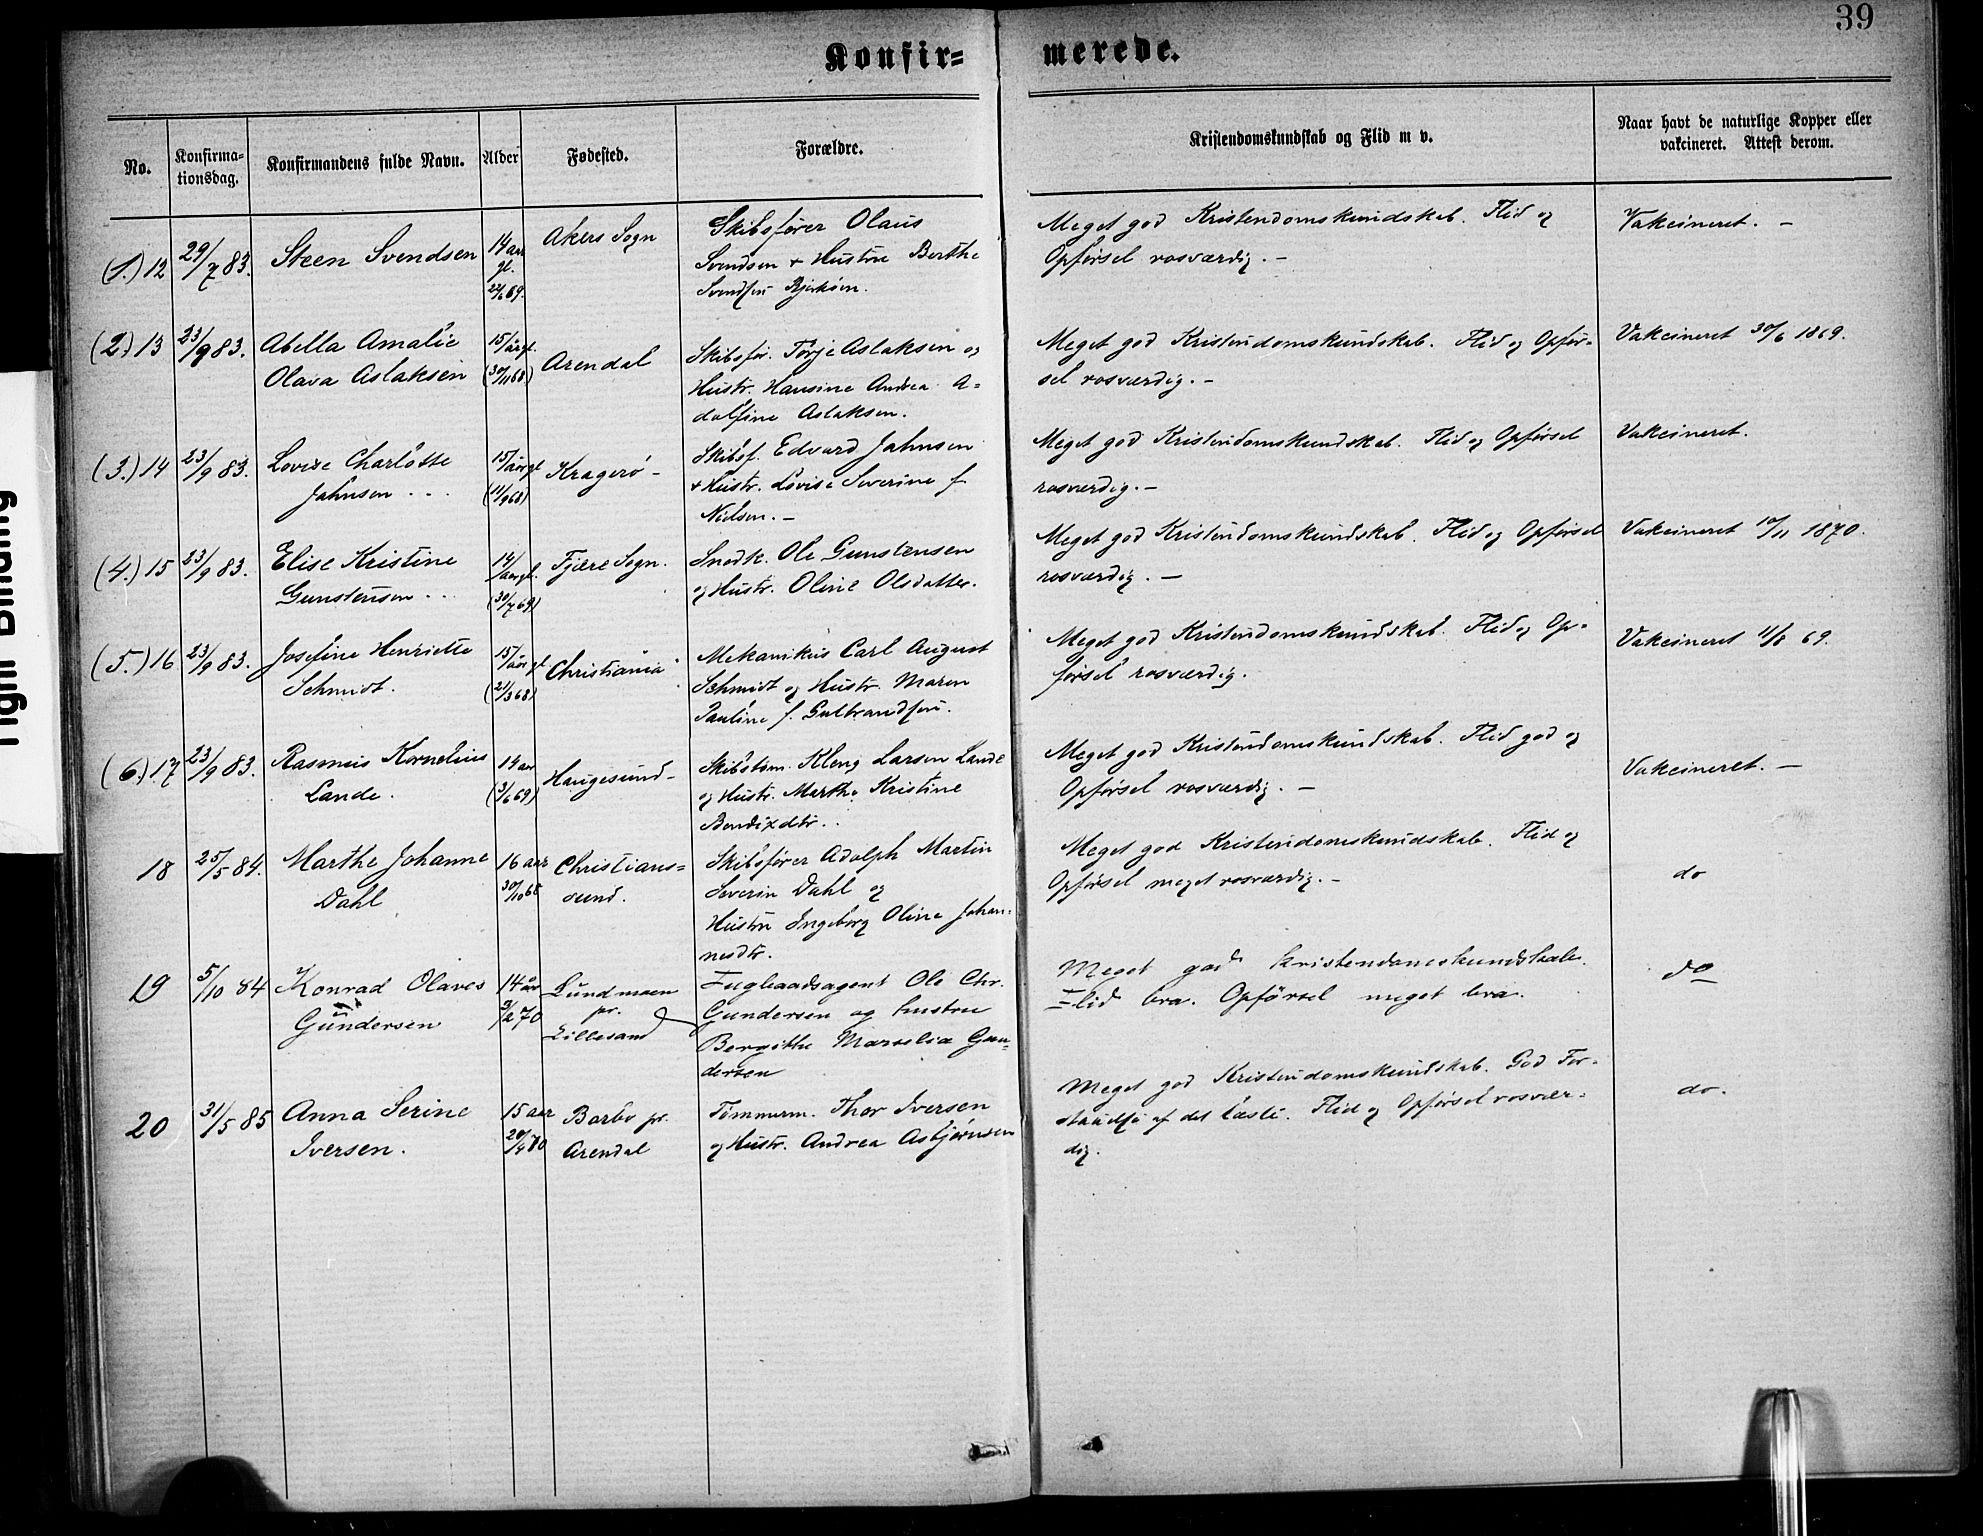 39
Konfir= merede.
No.
Konfirma-
tionsdag.
Konfirmandens fulde Navn.
Alder
Fødested.
Forældre.
Kristendomskundskab og Flid m v.
Naar havt de naturlige Kopper eller
vakcineret. Attest derom.
(1.) 12
29/7 83.
Steen Svendsen
14 aar
gl.
22/6 69.
Akers Sogn
Skibsfører Olaus
Svendsen + Hustru Berthe
Svendsen Bjerkøen.
Meget god Kristendomskundskab. Flid og
Opførsel rosværdig. -
Vakcineret. -
(2.) 13
23/9 83.
Abella Amalie
Olava Aslaksen
15/årgl.
(30/11 68)
Arendal
Skibsfør. Torje Aslaksen og
Hustr. Hansine Andrea A-
dolfine Aslaksen.
Meget god Kristendomskundskab. Flid og Opfør-
sel rosværdig. -
Vakcineret 30/6 1869.
(3.) 14
23/9 83.
Lovise Charlotte
Jahnsen . . .
15/årgl
(11/9 68)
Kragerø -
Skibsf. Edvard Jahnsen
+ Hustr. Lovise Severine f.
Nielsen. -
Meget god Kristendomskundskab. Flid og Opførsel
rosværdig. -
Vakcineret.
(4.) 15
23/9 83.
Elise Kristine
Gunstensen . .
14/aargl.
(30/7 69)
Fjære Sogn.
Snedk. Ole Gunstensen
og Hustr. Oline Olsdatter.
Meget god Kristendomskundskab. Flid og Opførsel
rosværdig. -
Vakcineret 10/11 1870.
(5.) 16
23/9 83.
Josefine Henriette
Schmidt.
15/årgl
(21/3 68)
Christiania
Mekanikus Carl August
Schmidt og Hustr. Maren
Pauline f. Gulbrandsen.
Meget god Kristendomskundskab. Flid og Op-
førsel rosværdig.
Vakcineret 11/8 69.
(6.) 17
23/9 83.
Rasmus Kornelius
Lande.
14 aar
(3/6 69)
Haugesund -
Skibstøm. Kleng Larsen Lande
og Hustr. Marthe Kristine
Bendixdtr. .
Meget god Kristendomskundskab. Flid god og
Opførsel rosværdig. -
Vakcineret. -
18
25/5 84.
Marthe Johanne
Dahl
16 aar
30/10 68
Christians=
sund.
Skibsfører Adolph Martin
Severin Dahl og
Hustru Ingeborg Oline Johan-
nesdtr.
Meget god Kristendomskundskab. Flid og
Opførsel meget rosværdig. -
do
19
5/10 84
Konrad Olaves
Gundersen
14 år
3/2 70
Lundmoen
pr.
Lillesand
Ole Chr.
Gundersen og hustru
Bergithe Marselia Gun-
dersen
Meget god kristendomskundskab.
Flid bra. Opførsel meget bra.
do
20
31/5 85
Anna Serine
Iversen.
15 aar
20/4 70
Barbo pr.
Arendal
Tømmerm. Thor Iversen
og Hustr. Andrea Asbjørnsen
Meget god Kristendomskundskab. God For-
staaelse af det læste. Flid og Opførsel rosvær-
dig.
do.
Tight Binding